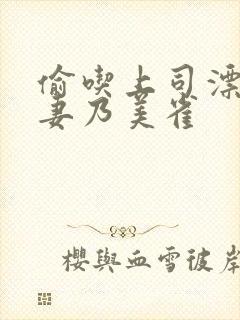 偷喫上司漂
妻乃美雀
櫻與血雪彼岸